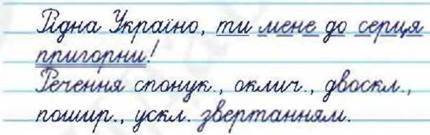 Рідна Україно, ти мене до серця
пригорни!
Речення спонук., оклич., двоскл.,
пошир., ускл. звертанням.